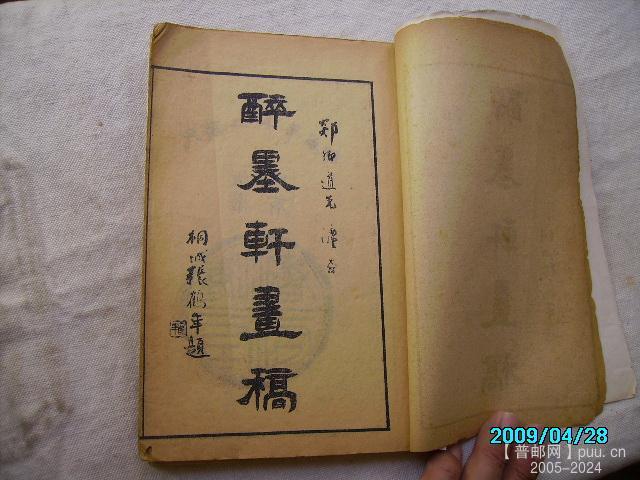 郯卿道兄瀍㐂
醉墨軒畫稿
桐城張鶴年題
2009/04/28
【普邮网】puu.cn
2005-2024